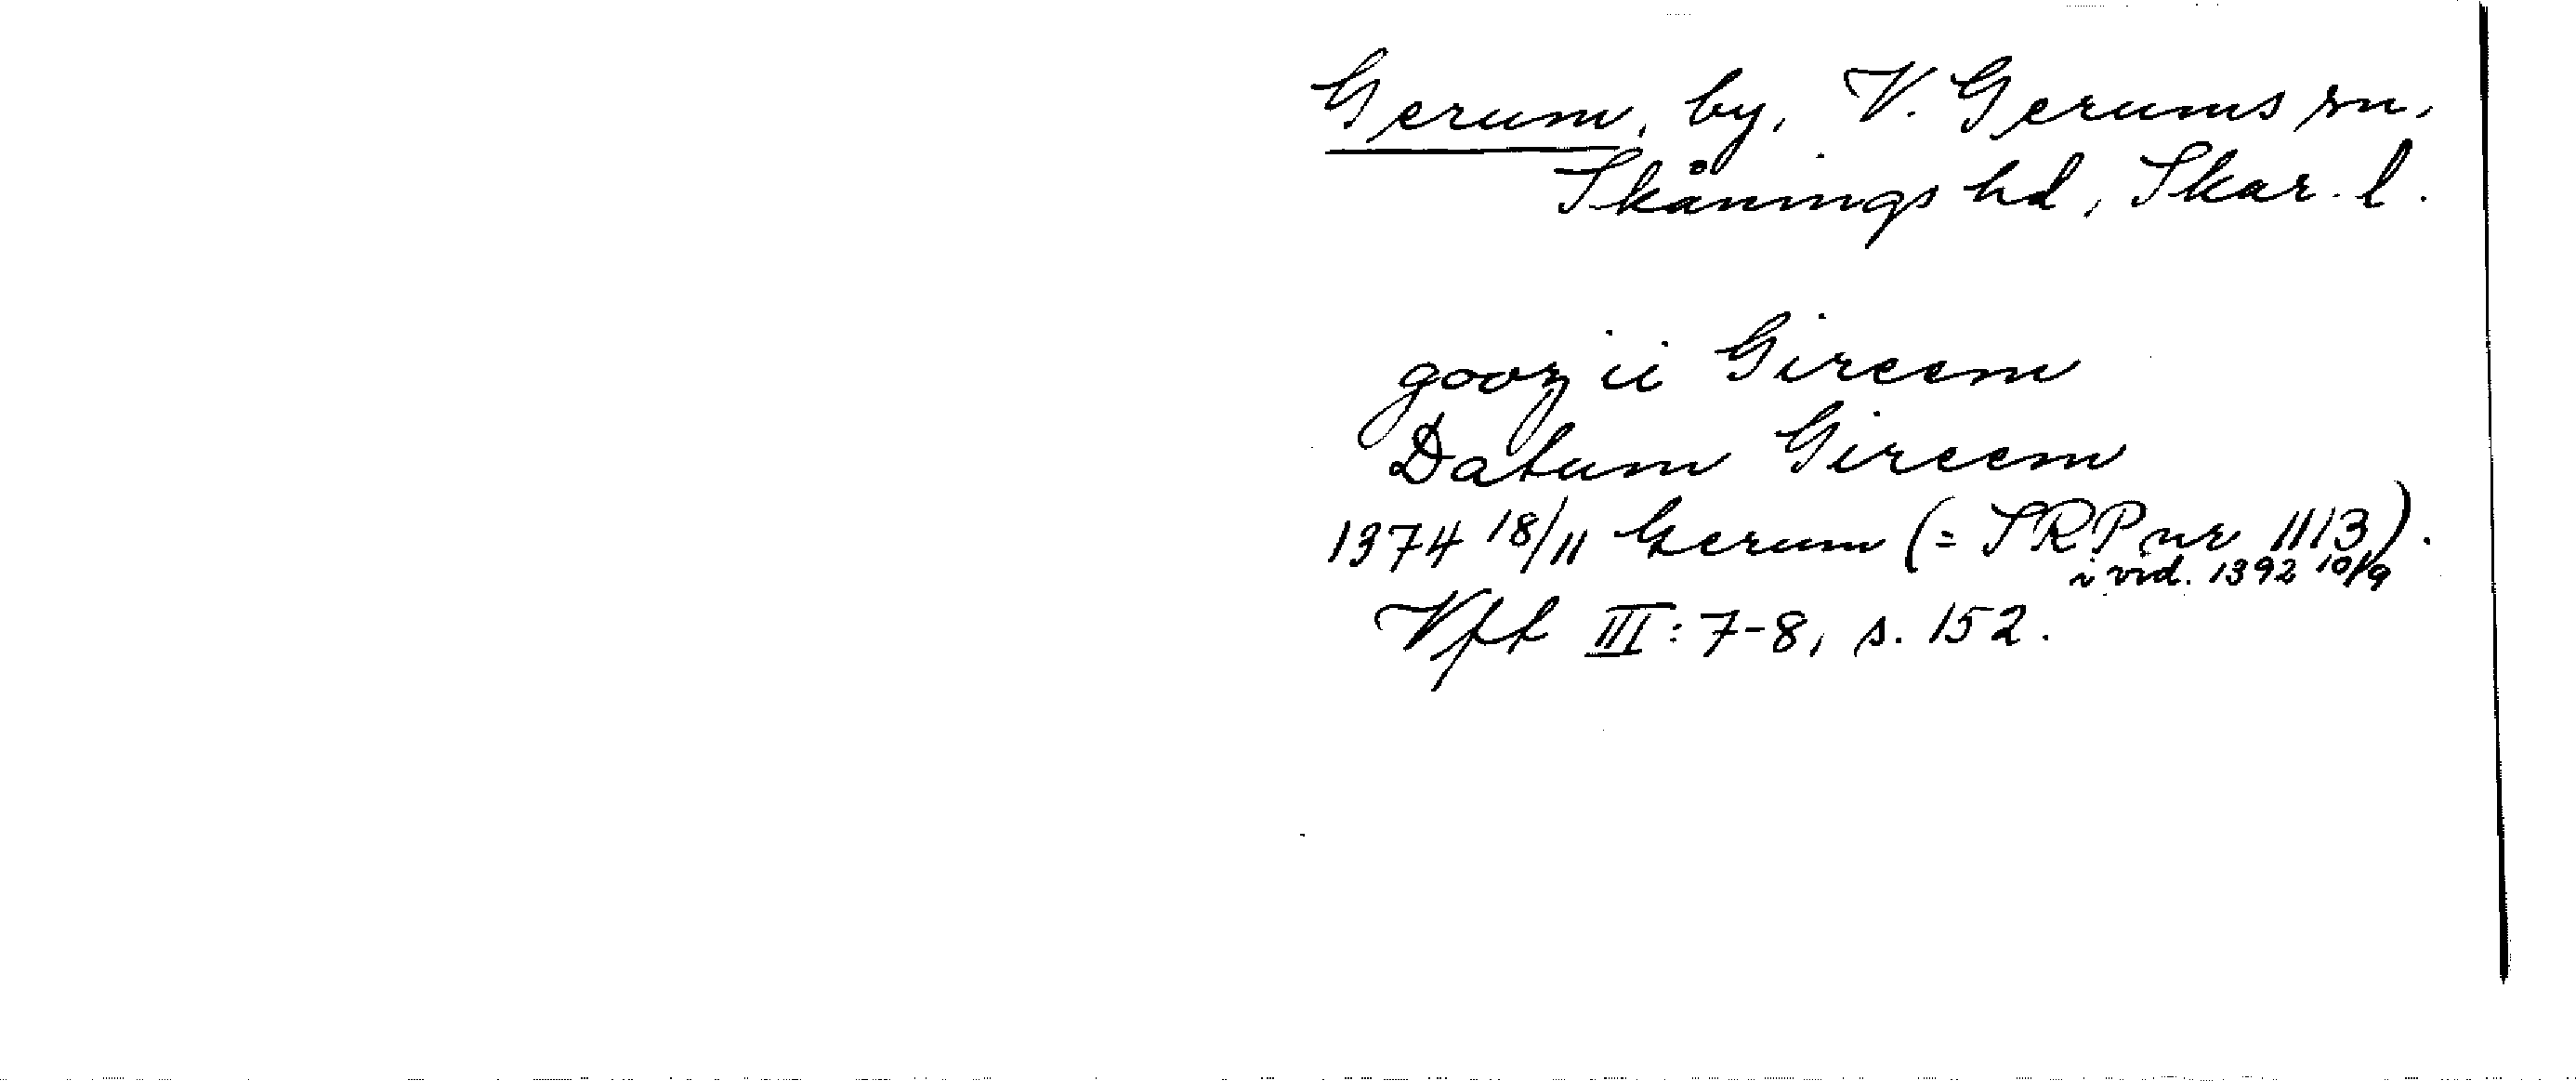 Gerum, by, V. Gerums sn,
Skånings hd, Skar. l.
gooz ii Gireem
Datum Gireem
1374 18/11 Gerum (= SRP nr 1113).
i vid. 1392 10/9
Vft III: 7-8, s. 152.